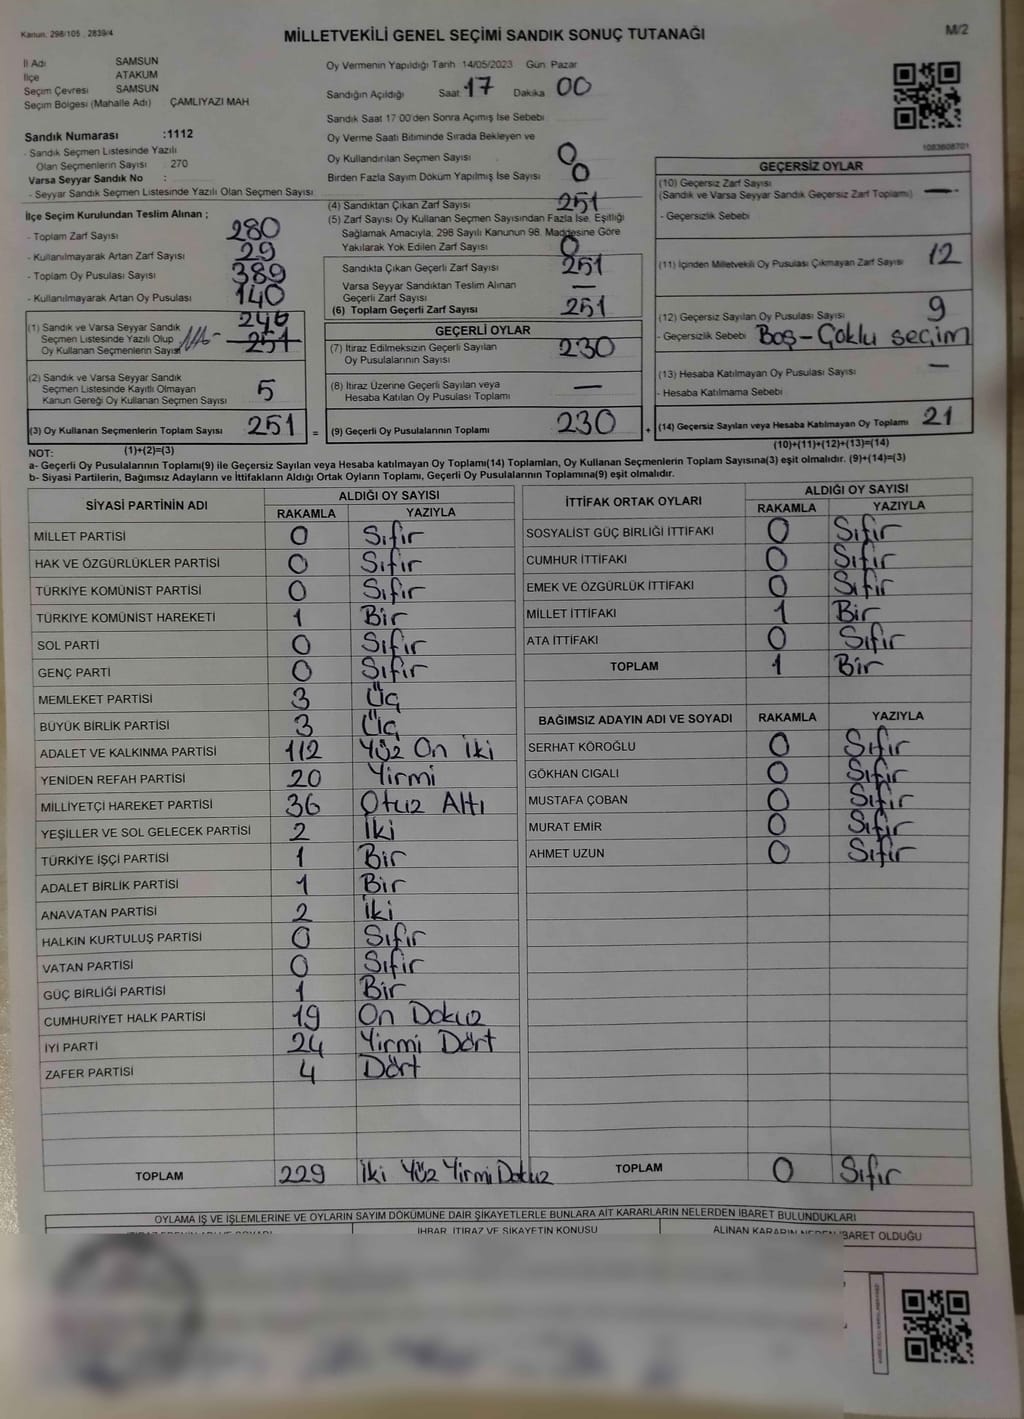 Kanun. 298/105 , 2839/4
MİLLETVEKİLİ GENEL SEÇİMİ SANDIK SONUÇ TUTANAĞI
M/2
İl Adı SAMSUN
İlçe ATAKUM
Seçim Çevresi SAMSUN
Seçim Bölgesi (Mahalle Adı) ÇAMLIYAZI MAH
Sandık Numarası :1112
- Sandık Seçmen Listesinde Yazılı
Olan Seçmenlerin Sayısı : 270
Varsa Seyyar Sandık No :
- Seyyar Sandık Seçmen Listesinde Yazılı Olan Seçmen Sayısı
Oy Vermenin Yapıldığı Tarih 14/05/2023 Gün Pazar
Sandığın Açıldığı Saat 17 Dakika 00
Sandık Saat 17 00'den Sonra Açılmış İse Sebebi
Oy Verme Saati Bitiminde Sırada Bekleyen ve
Oy Kullandırılan Seçmen Sayısı 0
Birden Fazla Sayım Döküm Yapılmış İse Sayısı 0
(4) Sandıktan Çıkan Zarf Sayısı 251
(5) Zarf Sayısı Oy Kullanan Seçmen Sayısından Fazla İse, Eşitliği
Sağlamak Amacıyla, 298 Sayılı Kanunun 98. Maddesine Göre
Yakılarak Yok Edilen Zarf Sayısı 0
İlçe Seçim Kurulundan Teslim Alınan ;
- Toplam Zarf Sayısı 280
- Kullanılmayarak Artan Zarf Sayısı 29
- Toplam Oy Pusulası Sayısı 389
- Kullanılmayarak Artan Oy Pusulası 140
(1) Sandık ve Varsa Seyyar Sandık 246
Seçmen Listesinde Yazılı Olup
Oy Kullanan Seçmenlerin Sayısı 251
(2) Sandık ve Varsa Seyyar Sandık
Seçmen Listesinde Kayıtlı Olmayan
Kanun Gereği Oy Kullanan Seçmen Sayısı 5
(3) Oy Kullanan Seçmenlerin Toplam Sayısı 251 =
(1)+(2)=(3)
Sandıkta Çıkan Geçerli Zarf Sayısı 251
Varsa Seyyar Sandıktan Teslim Alınan
Geçerli Zarf Sayısı —
(6) Toplam Geçerli Zarf Sayısı 251
GEÇERLİ OYLAR
(7) İtiraz Edilmeksizin Geçerli Sayılan
Oy Pusulalarının Sayısı 230
(8) İtiraz Üzerine Geçerli Sayılan veya
Hesaba Katılan Oy Pusulası Toplamı —
(9) Geçerli Oy Pusulalarının Toplamı 230 +
1083608701
GEÇERSİZ OYLAR
(10) Geçersiz Zarf Sayısı
(Sandık ve Varsa Seyyar Sandık Geçersiz Zarf Toplamı) —
- Geçersizlik Sebebi
(11) İçinden Milletvekili Oy Pusulası Çıkmayan Zarf Sayısı 12
(12) Geçersiz Sayılan Oy Pusulası Sayısı 9
- Geçersizlik Sebebi Boş-Çoklu seçim
(13) Hesaba Katılmayan Oy Pusulası Sayısı —
- Hesaba Katılmama Sebebi
(14) Geçersiz Sayılan veya Hesaba Katılmayan Oy Toplamı 21
(10)+(11)+(12)+(13)=(14)
NOT:
a- Geçerli Oy Pusulalarının Toplamı(9) ile Geçersiz Sayılan veya Hesaba katılmayan Oy Toplamı(14) Toplamları, Oy Kullanan Seçmenlerin Toplam Sayısına(3) eşit olmalıdır. (9)+(14)=(3)
b- Siyasi Partilerin, Bağımsız Adayların ve İttifakların Aldığı Ortak Oyların Toplamı, Geçerli Oy Pusulalarının Toplamına(9) eşit olmalıdır.
SİYASİ PARTİNİN ADI ALDIĞI OY SAYISI
RAKAMLA YAZIYLA
MİLLET PARTİSİ 0 Sıfır
HAK VE ÖZGÜRLÜKLER PARTİSİ 0 Sıfır
TÜRKİYE KOMÜNİST PARTİSİ 0 Sıfır
TÜRKİYE KOMÜNİST HAREKETİ 1 Bir
SOL PARTİ 0 Sıfır
GENÇ PARTİ 0 Sıfır
MEMLEKET PARTİSİ 3 Üç
BÜYÜK BİRLİK PARTİSİ 3 Üç
ADALET VE KALKINMA PARTİSİ 112 Yüz On iki
YENİDEN REFAH PARTİSİ 20 Yirmi
MİLLİYETÇİ HAREKET PARTİSİ 36 Otuz Altı
YEŞİLLER VE SOL GELECEK PARTİSİ 2 İki
TÜRKİYE İŞÇİ PARTİSİ 1 Bir
ADALET BİRLİK PARTİSİ 1 Bir
ANAVATAN PARTİSİ 2 İki
HALKIN KURTULUŞ PARTİSİ 0 Sıfır
VATAN PARTİSİ 0 Sıfır
GÜÇ BİRLİĞİ PARTİSİ 1 Bir
CUMHURİYET HALK PARTİSİ 19 On Dokuz
İYİ PARTİ 24 Yirmi Dört
ZAFER PARTİSİ 4 Dört
TOPLAM 229 İki Yüz Yirmi Dokuz
İTTİFAK ORTAK OYLARI ALDIĞI OY SAYISI
RAKAMLA YAZIYLA
SOSYALİST GÜÇ BİRLİĞİ İTTİFAKI 0 Sıfır
CUMHUR İTTİFAKI 0 Sıfır
EMEK VE ÖZGÜRLÜK İTTİFAKI 0 Sıfır
MİLLET İTTİFAKI 1 Bir
ATA İTTİFAKI 0 Sıfır
TOPLAM 1 Bir
BAĞIMSIZ ADAYIN ADI VE SOYADI RAKAMLA YAZIYLA
SERHAT KÖROĞLU 0 Sıfır
GÖKHAN CIGALI 0 Sıfır
MUSTAFA ÇOBAN 0 Sıfır
MURAT EMİR 0 Sıfır
AHMET UZUN 0 Sıfır
TOPLAM 0 Sıfır
OYLAMA İŞ VE İŞLEMLERİNE VE OYLARIN SAYIM DÖKÜMÜNE DAİR ŞİKAYETLERLE BUNLARA AİT KARARLARIN NELERDEN İBARET BULUNDUKLARI
İHBAR, İTİRAZ VE ŞİKAYETİN KONUSU
ALINAN KARARIN NEDEN İBARET OLDUĞU